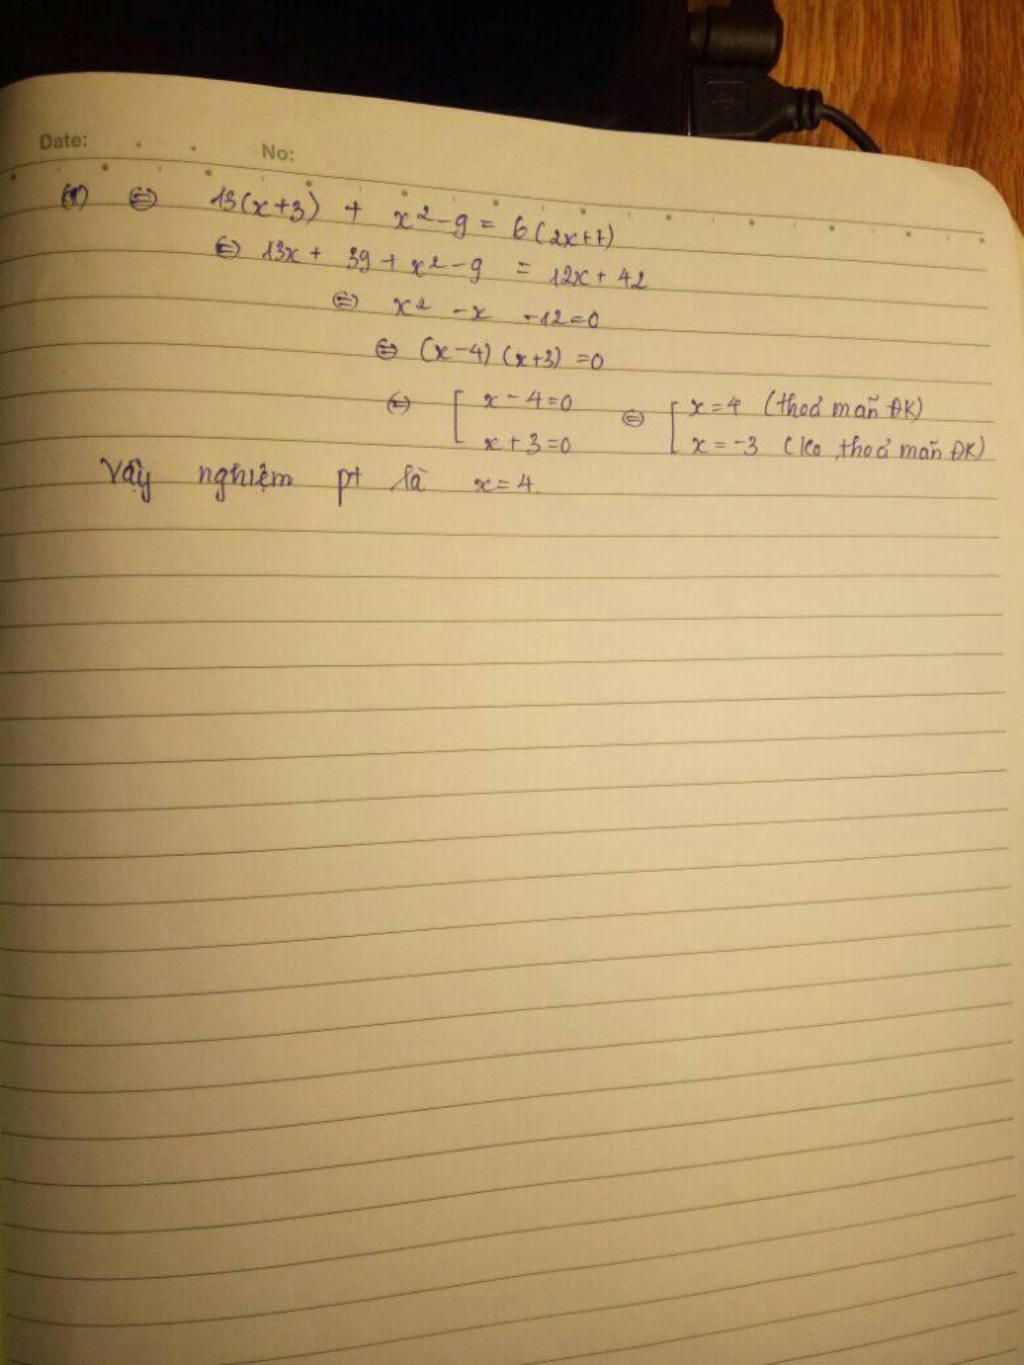 Date: No:
(1) ⇔ 13(x+3) + x² - 9 = 6(2x+7)
⇔ 13x + 39 + x² - 9 = 12x + 42
⇔ x² - x - 12 = 0
⇔ (x-4)(x+3) = 0
⇔ [ x - 4 = 0 ⇔ [ x = 4 (thoả mãn ĐK)
x + 3 = 0 x = -3 (ko thoả mãn ĐK)
Vậy nghiệm pt là x = 4.